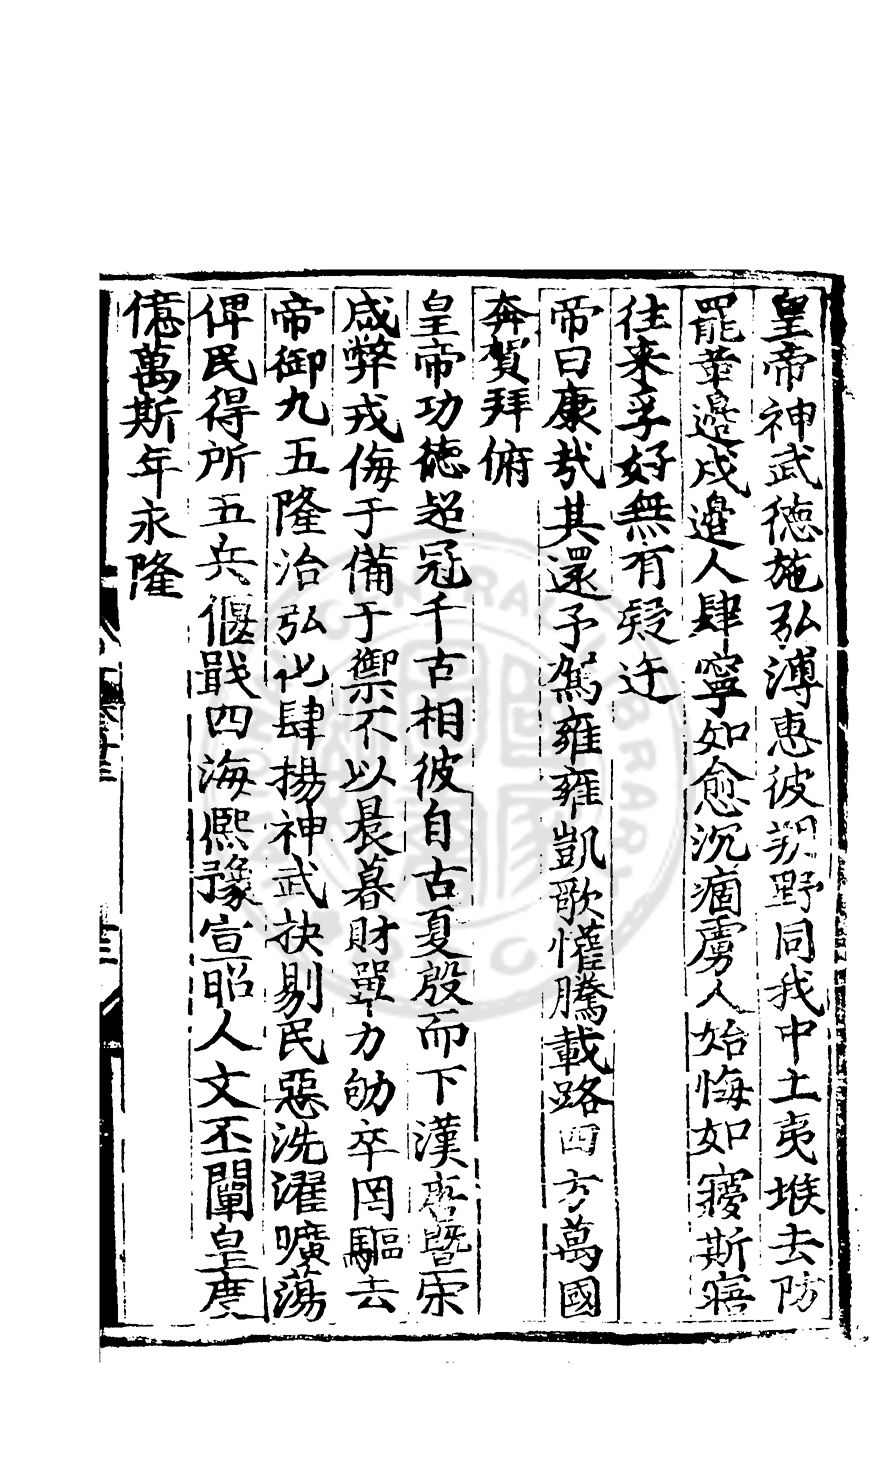 皇帝神武德施弘溥惠彼朔野同我中土夷堠去防
罷㽵邊戍邊人肆寧如愈沉痼虜人始悔如寢斯寤
往来孚好無有疑迕
帝曰康㢤其還予駕雍雍凱歌懽騰載路四方萬國
奔賀拜俯
皇帝功德超冠千古相彼自古夏殷而下漢唐暨宋
咸弊戎侮于備于禦不以晨暮財單力劬卒罔驅去
帝御九五隆治弘化肆揚神武抉剔民惡洗濯曠蕩
俾民得所五兵偃戢四海熙豫宣昭人文丕闡皇度
億萬斯年永隆